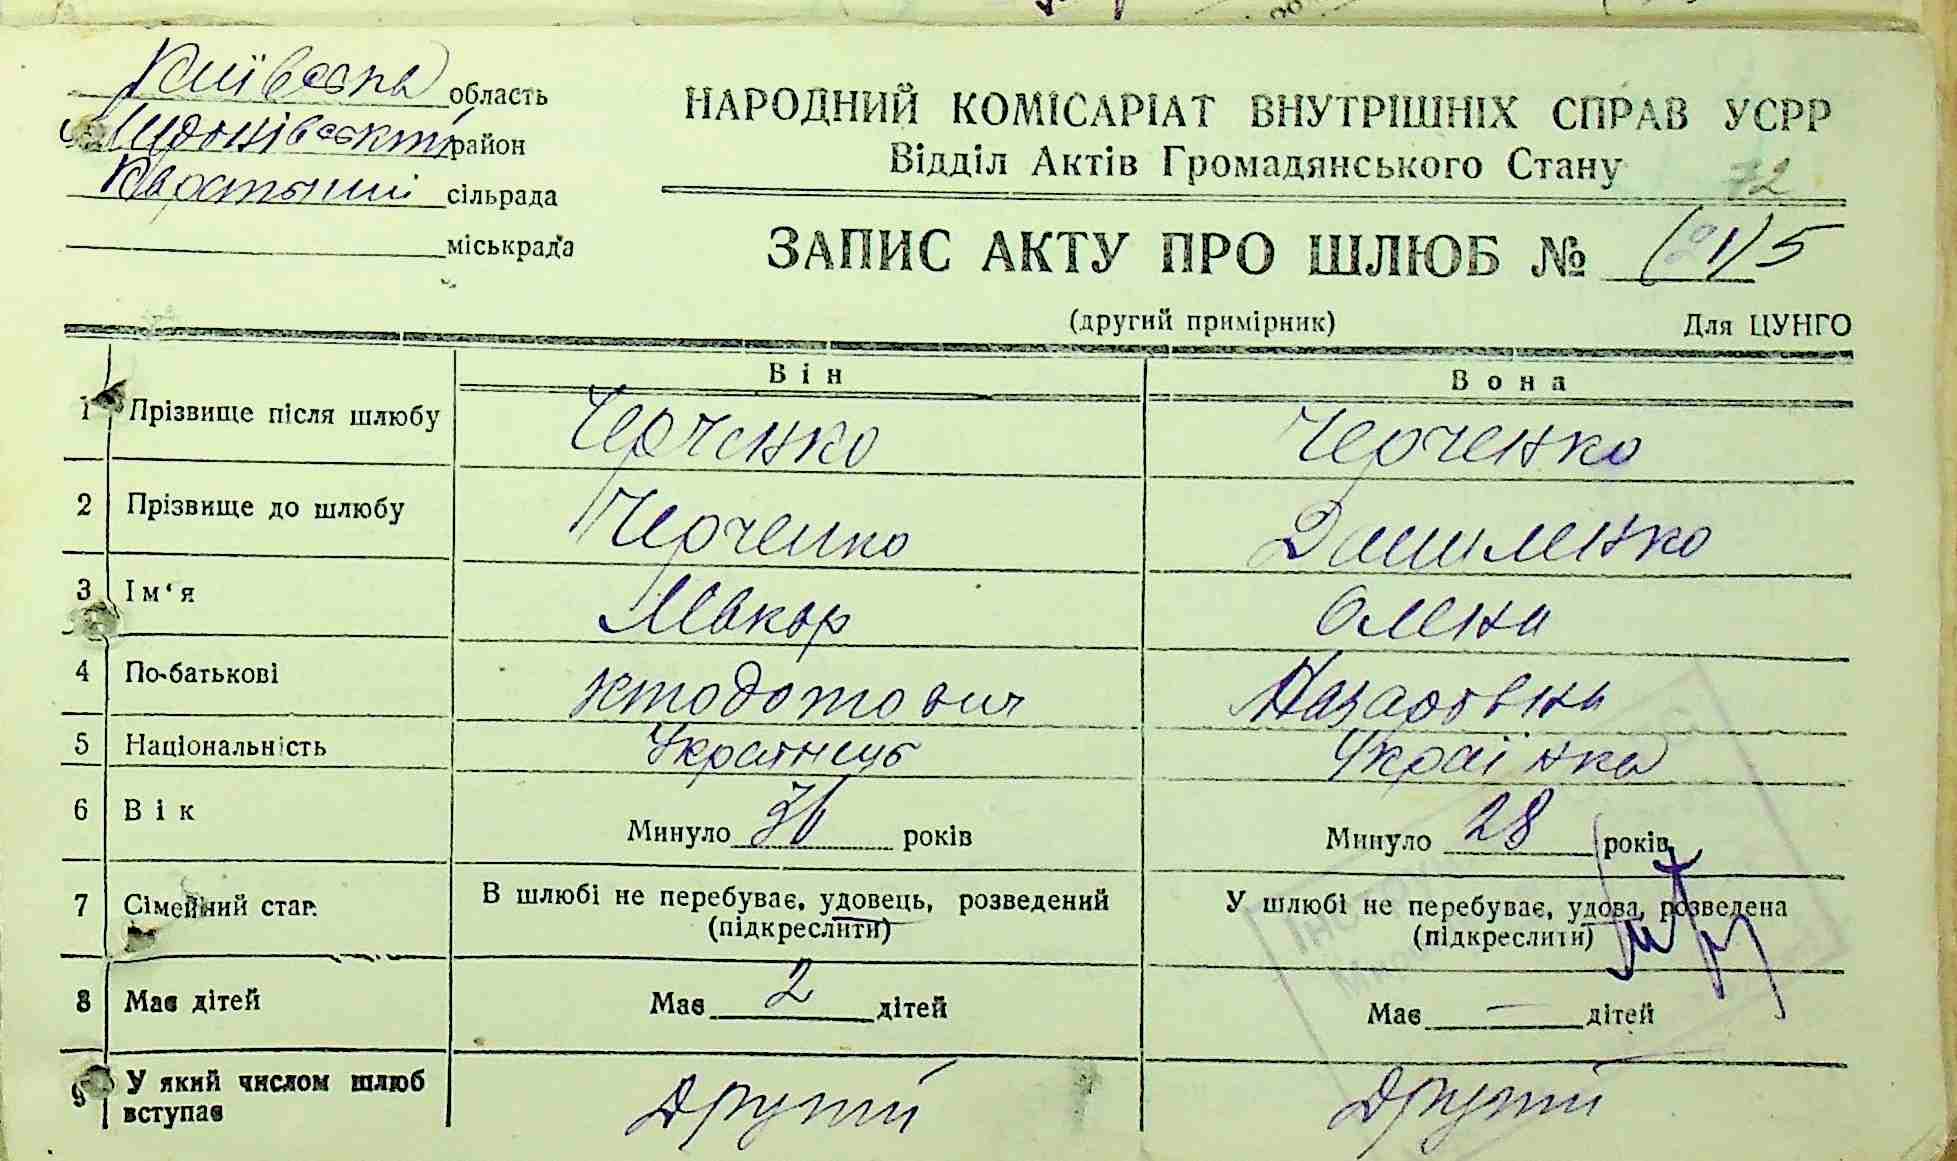 Київська область
район
сільрада
міськрада
НАРОДНИЙ КОМІСАРІАТ ВНУТРІШНІХ СПРАВ УСРР
Відділ Актів Громадянського Стану
72
ЗАПИС АКТУ ПРО ШЛЮБ № (21) 5
(другий примірник) Для ЦУНГО
Він Вона
1 Прізвище після шлюбу Черченко Черченко
2 Прізвище до шлюбу Черченко Даниленко
3 Ім‘я Макар Олена
4 По-батькові Назаровна
5 Національність Українець Українка
6 Вік Минуло років Минуло 28 років
7 Сімейний стан В шлюбі не перебуває, удовець, розведений (підкреслити) У шлюбі не перебуває, удова, розведена (підкреслити)
8 Має дітей Має 2 дітей Має — дітей
9 У який числом шлюб вступає Другий Другий